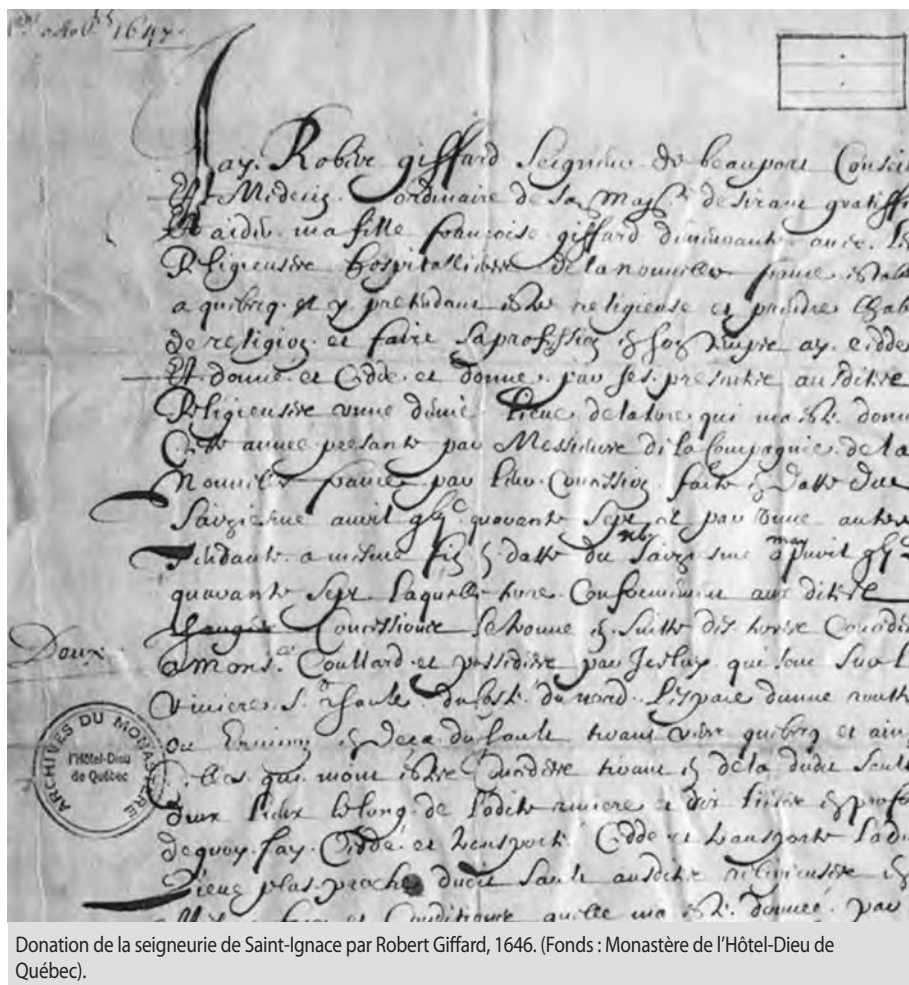 octob 1647
Jay Robert giffard Seigneur de beauport Conseil
Et Medecin ordinaire de sa Mag desirant gratiffi
Et aider ma fille francoise giffard demeurante avec le
Religieuses hospitallieres de la nouvelle france establ
a quebecq et y pretendant estre religieuse et prendre lhab
de religion et faire sa profession ay cedde
Et donné et Cedde et donne par ses presentes ausdites
Religieuses une demie lieue de terre qui ma esté donn
Cette annee presante par Messieurs de la Compagnie de la
Nouvelle france par leur Concession faite en datte du
Saiziesme avril quarante Sept et par une autre
datte du Saiziesme may avril
quarante Sept laquelle terre Conformement aux dites
Concessions se donne en suitte des terres
Deux
a Mons Coullard et possedees par Jceluy qui sont sur l
riviere Ste Charles du costé du nord lespace dune
ou environ en deca du sault tirant vers quebecq et
qui mont estre tirant en dela dudit Sault
deux lieux le long de ladite riviere et dix lieues en profo
dequoy jay Cedde et transporté Cedde et transporte ladi
lieue plus proche dudit Sault ausdites religieuses
et Conditions quelle ma esté donnee par
ARCHIVES DU MONASTÈRE
l'Hôtel-Dieu
de Québec
Donation de la seigneurie de Saint-Ignace par Robert Giffard, 1646. (Fonds : Monastère de l'Hôtel-Dieu de
Québec).